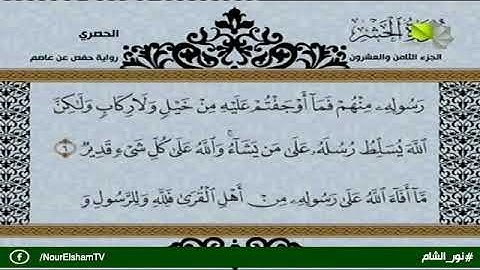 سورة الحشر
الحصري
الجزء الثامن والعشرون
رواية حفص عن عاصم
رَسُولِهِۦ مِنْهُمْ فَمَآ أَوْجَفْتُمْ عَلَيْهِ مِنْ خَيْلٍ وَلَا رِكَابٍ وَلَٰكِنَّ
ٱللَّهَ يُسَلِّطُ رُسُلَهُۥ عَلَىٰ مَن يَشَآءُ ۚ وَٱللَّهُ عَلَىٰ كُلِّ شَىْءٍ قَدِيرٌ ٦
مَّآ أَفَآءَ ٱللَّهُ عَلَىٰ رَسُولِهِۦ مِنْ أَهْلِ ٱلْقُرَىٰ فَلِلَّهِ وَلِلرَّسُولِ وَ
/NourElshamTV
#نور_الشام